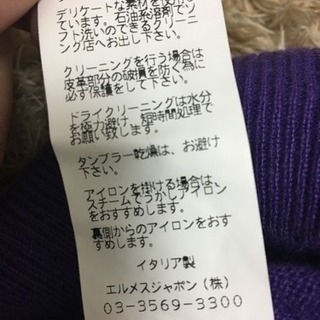 デリケートな素材を
ています。石油系溶剤でソ
フト洗いのできるクリーニ
ング店へお出し下さい。
クリーニングを行う場合は
皮革部分の破損を防ぐ為に
必ず保護をして下さい。
ドライクリーニングは水分
を極力避け、短時間処理で
お願い致します。
タンブラー乾燥は、お避け
下さい。
アイロンを掛ける場合は
スチームでうかしアイロン
をおすすめします。
裏側からのアイロンをおす
すめします。
イタリア製
エルメスジャポン(株)
03-3569-3300